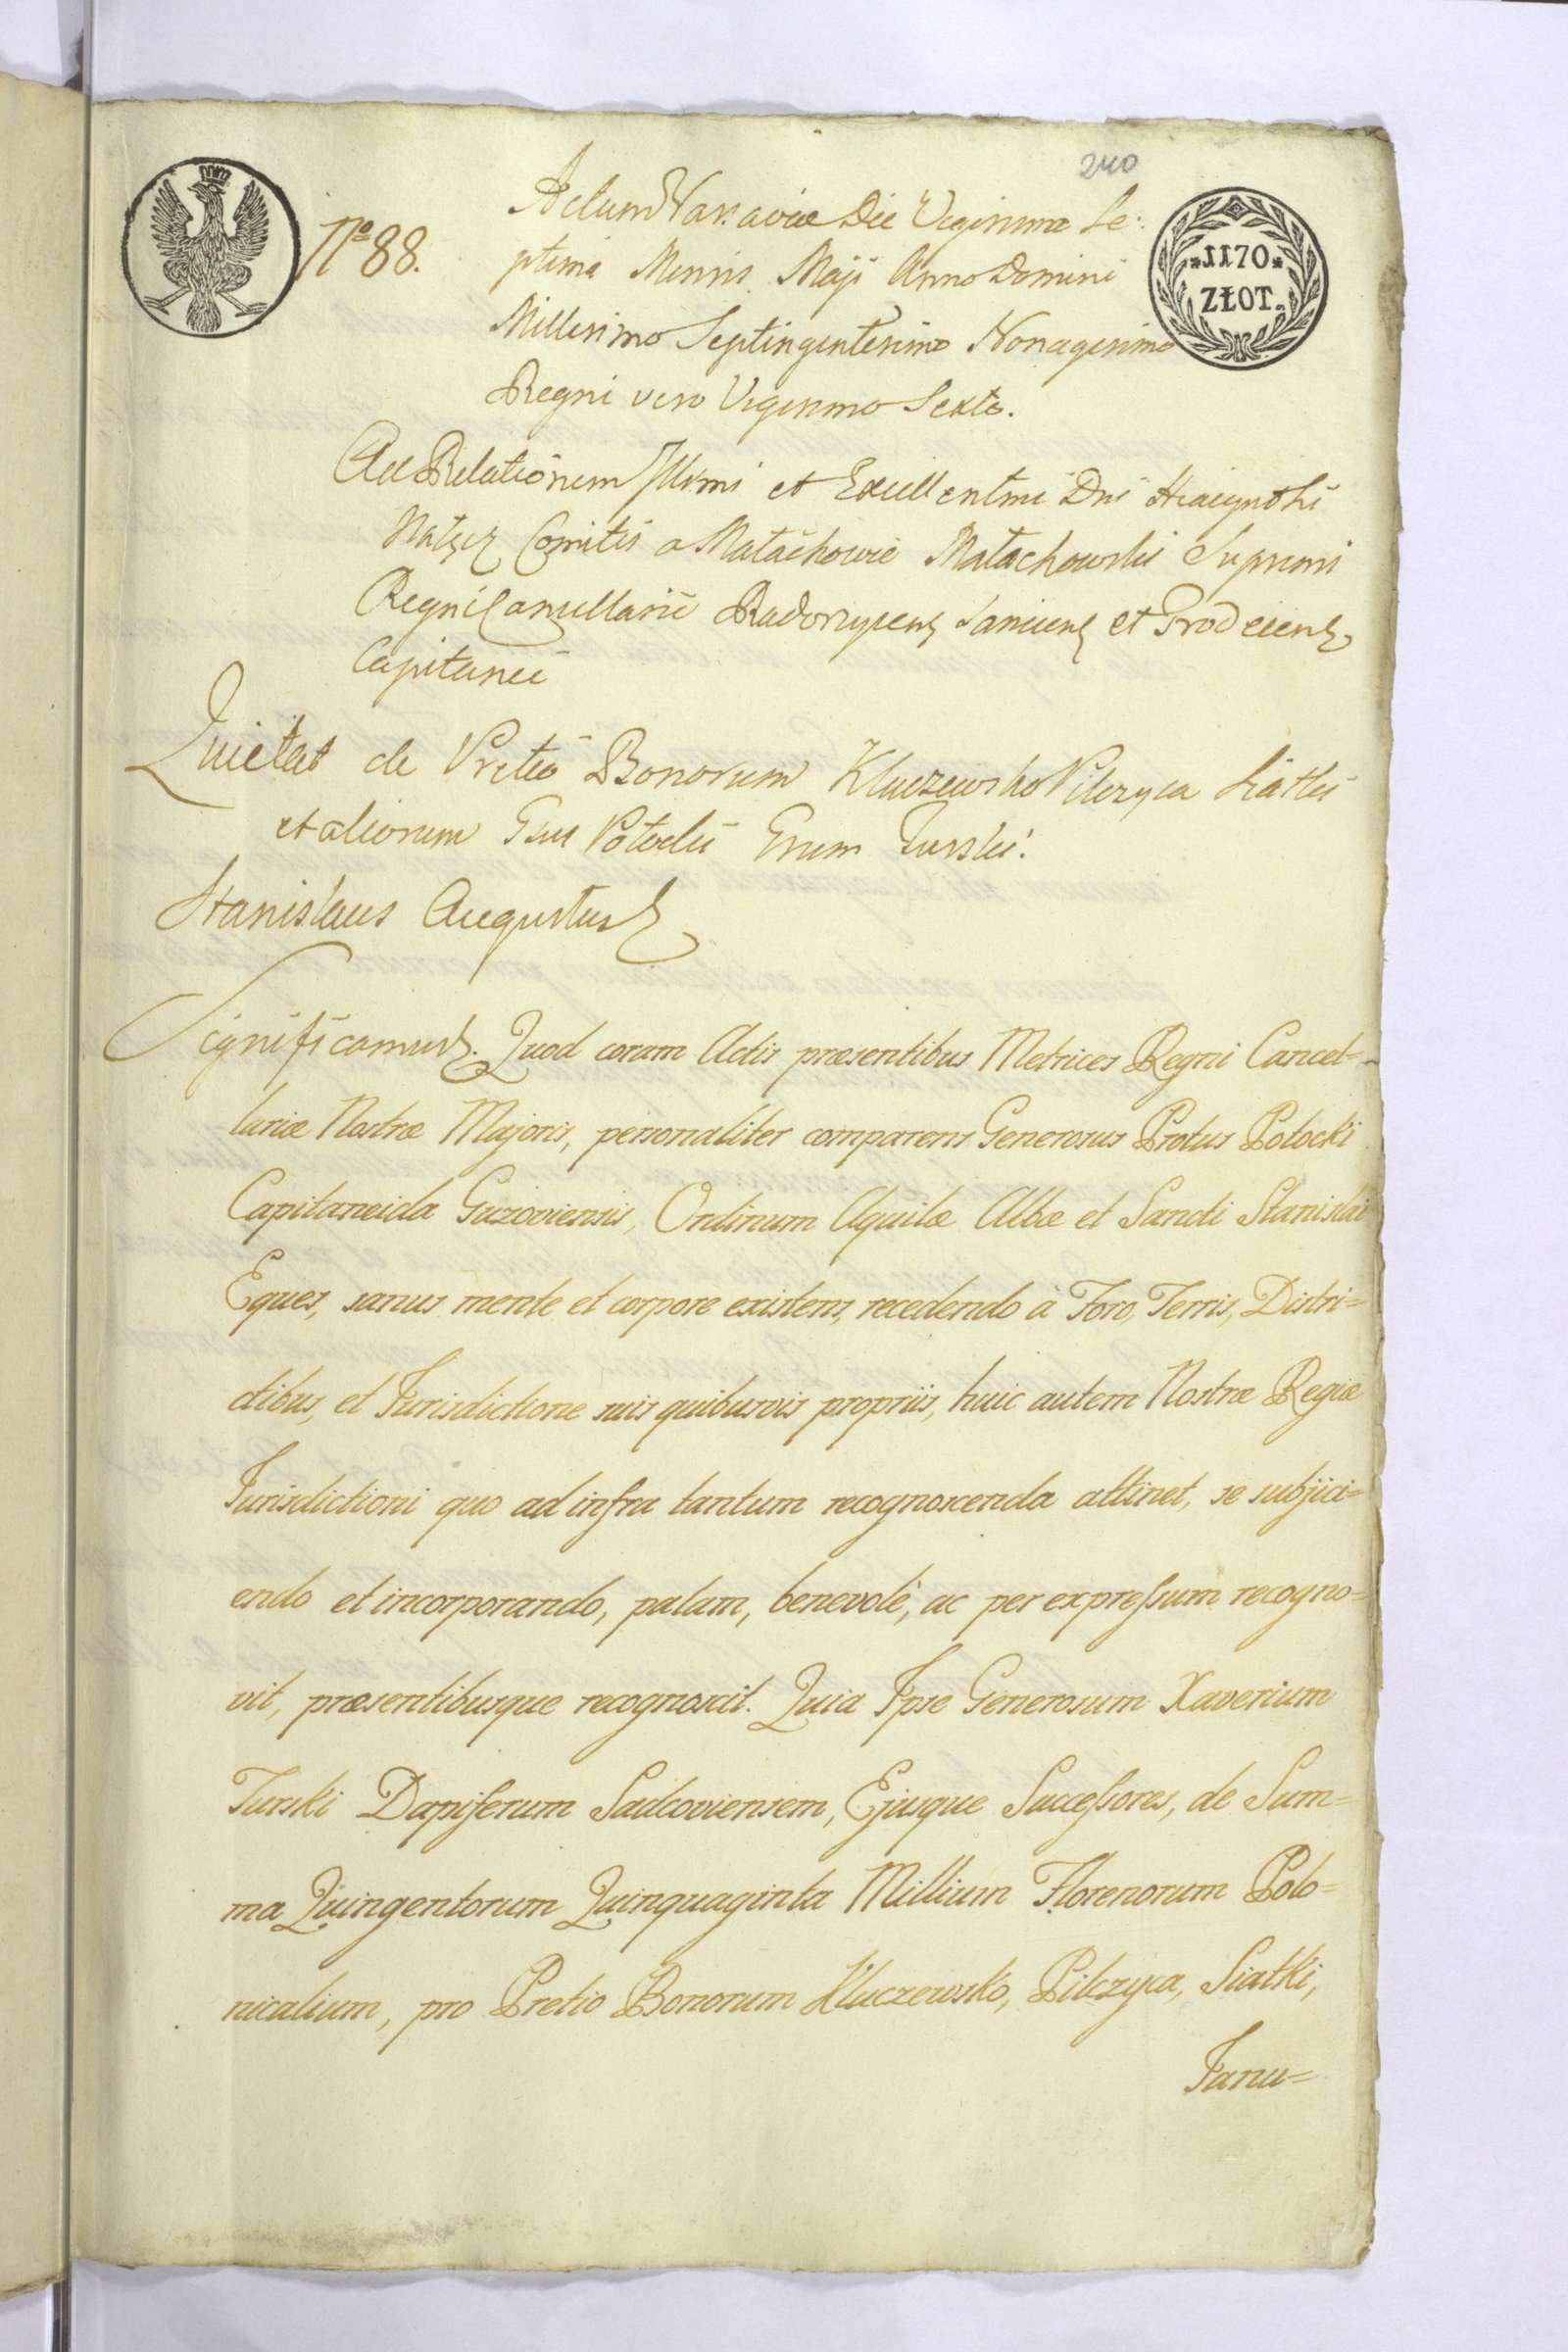 240
Actum Varsaviæ Die Vigesima Se:
Nº 88.
ptima Mensis Maji Anno Domini
*1170*
ZŁOT.
Millesimo Septingentesimo Nonagesimo
Regni vero Vigesimo Sexto.
Ad Relationem Illmi et Excellentmi Dni Hiacynthi
Nałęcz Comitis a Małachowice Małachowski Supremi
Regni Cancellarii Radoszycens et Grodecens
Capitanei
Quietat de Pretio Bonorum Kluczewsko Pilczyca Siatki
et aliorum Gsus Potocki Gnum Turski.
Stanislaus Augustus
Significamus. Quod coram Actis præsentibus Metrices Regni Cancel=
lariæ Nostræ Majoris, personaliter comparens Generosus Protus Potocki
Capitaneida Guzoviensis, Ordinum Aquilæ Albæ et Sancti Stanislai
Eques, sanus mente et corpore existens, recedendo à Foro, Terris, Distri=
ctibus, et Jurisdictione suis quibusvis propriis, huic autem Nostræ Regiæ
Jurisdictioni quo ad infra tantum recognoscenda attinet, se subjici=
endo et incorporando, palam, benevolè, ac per expreſsum recogno=
vit, præsentibusque recognoscit. Quia Ipse Generosum Xaverium
Turski Dapiferum Sadcoviensem, Ejusque Succeſsores, de Sum=
ma Quingentorum Quinquaginta Millium Florenorum Polo=
nicalium, pro Pretio Bonorum Kluczewsko, Pilczyca, Siatki,
Janu=